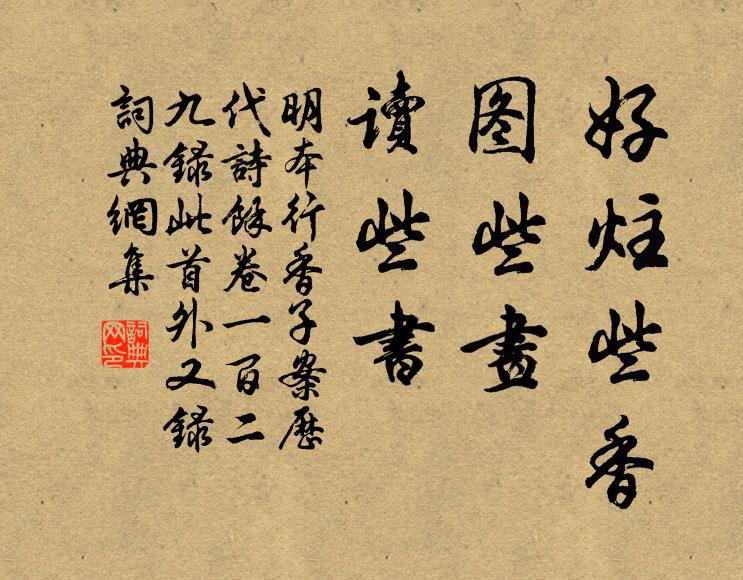 好炷些香
图些畫
讀些書
明本行香子案歷
代詩餘卷一百二
九録此首外又録
詞典網集
詞典網印